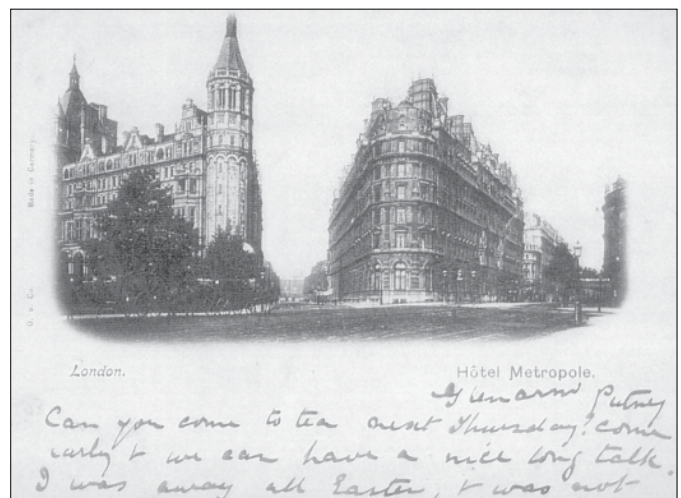 Made in Germany.
G. & Co.
London.
Hôtel Metropole.
Glenarm Putney
Can you come to tea next Thursday? come
early & we can have a nice long talk.
I was away all Easter, & was not